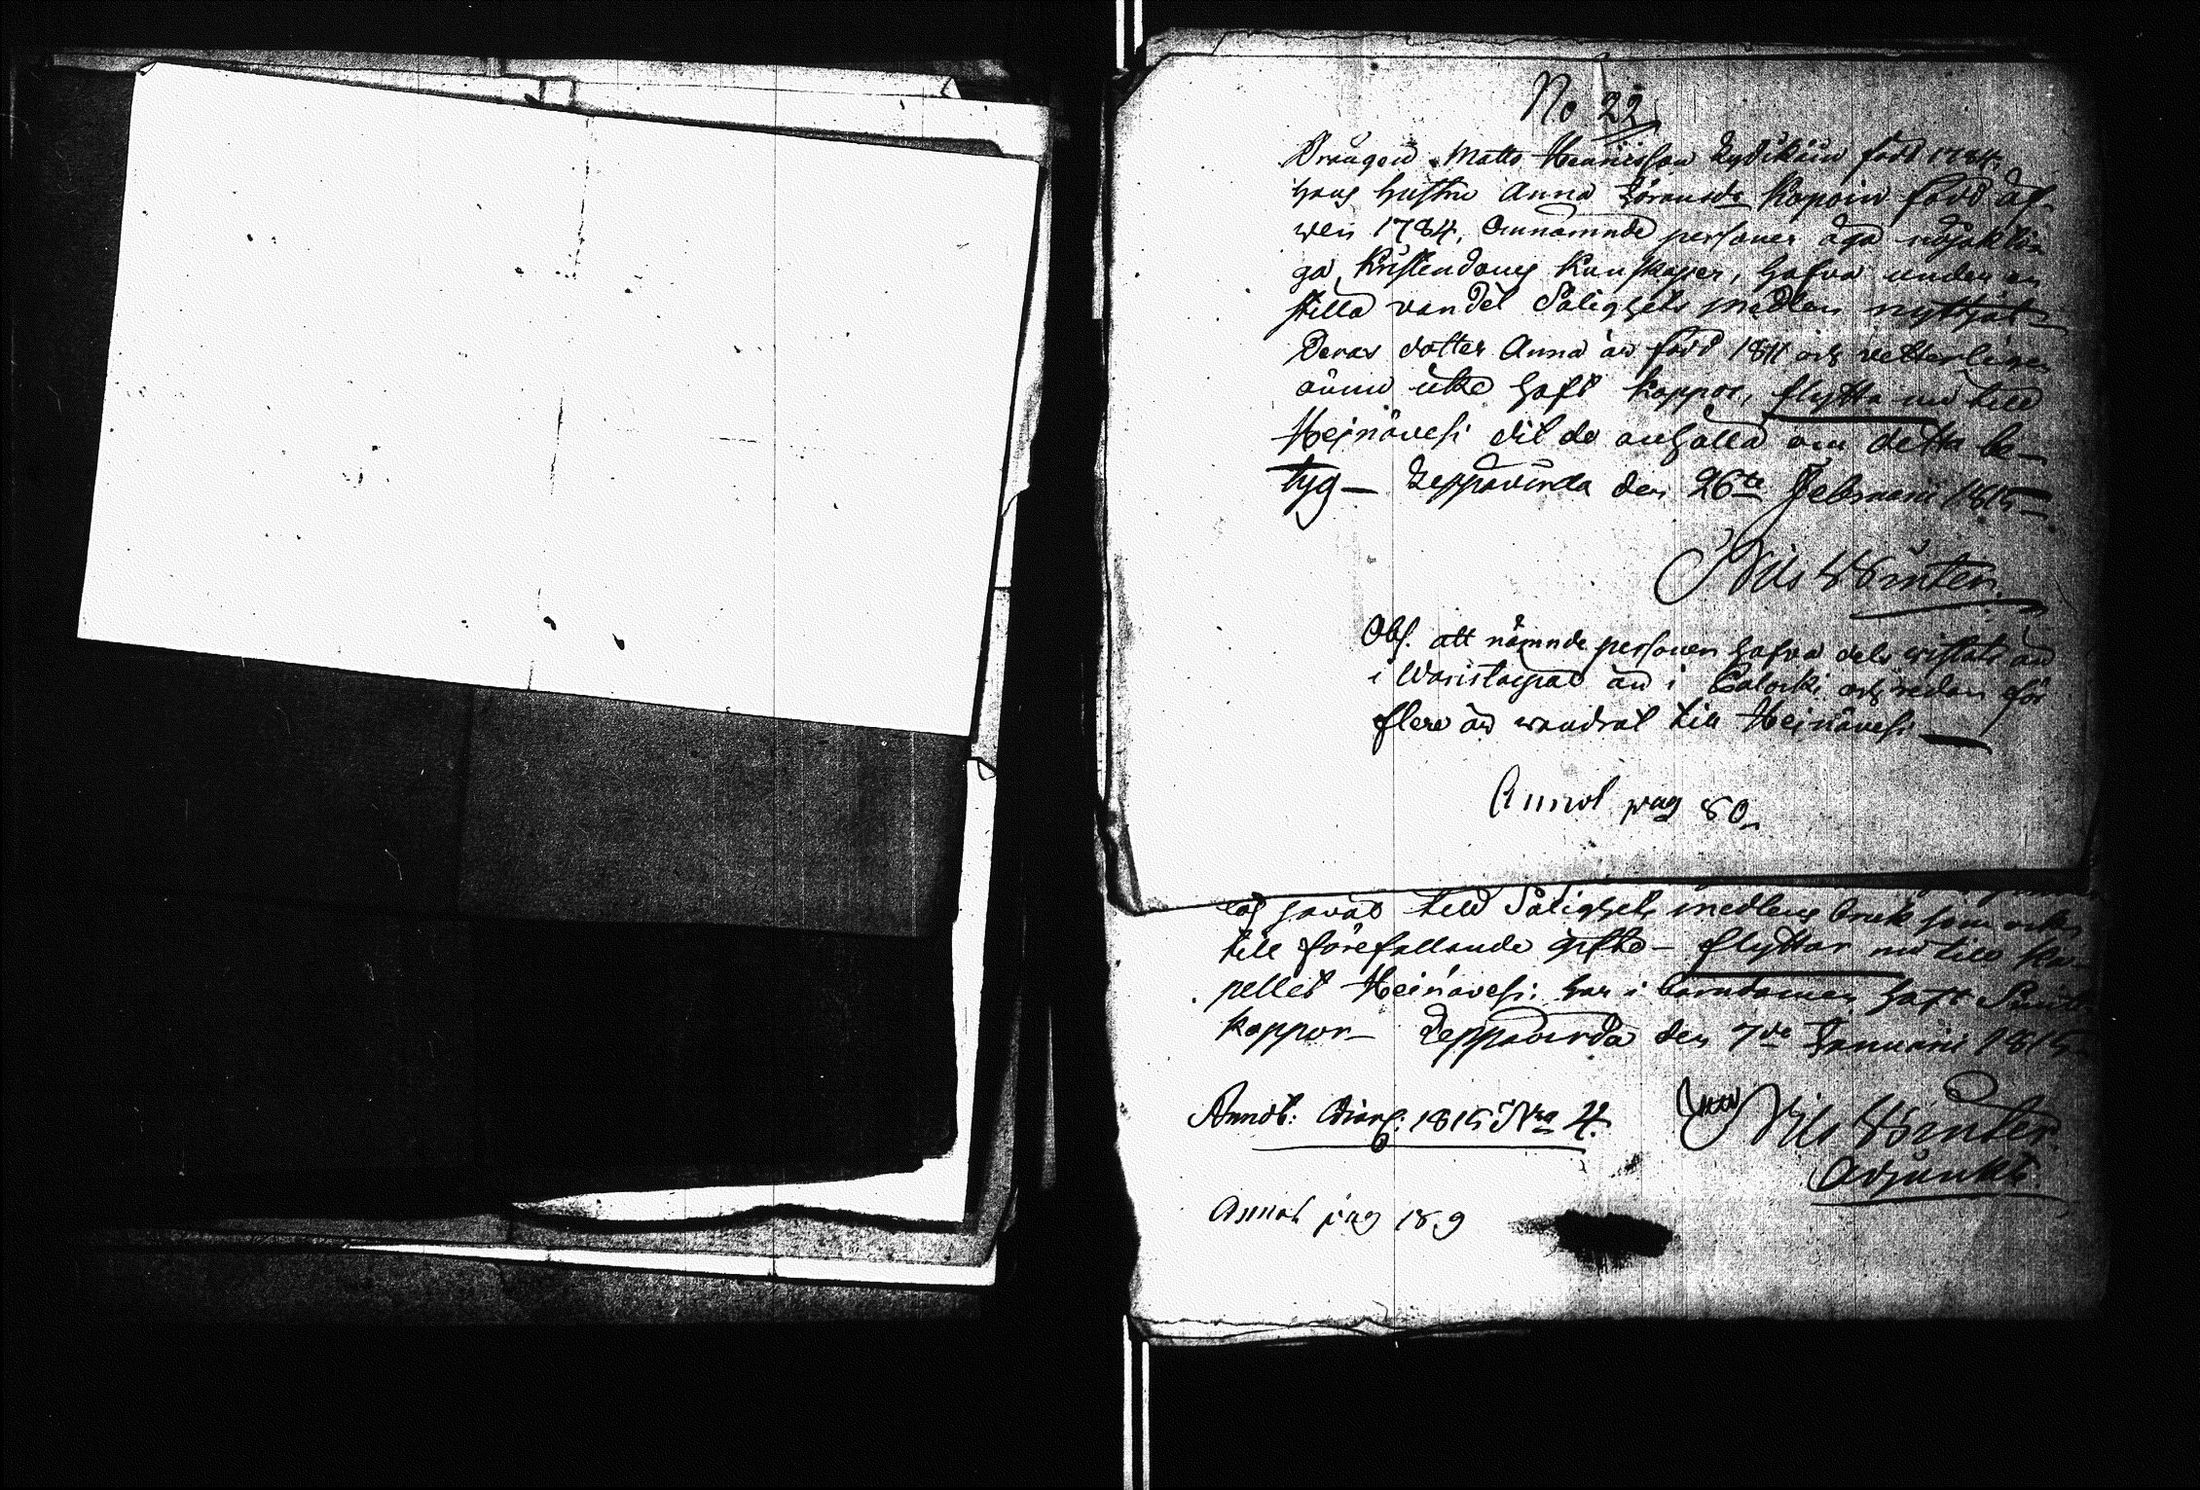 No 22
Drängen Matts Henriksson Kydikäin född 1784,
hans hustru Anna Göransdr Kopoin född äf-
wen 1784, Ennämnde personer äga nöjakti-
ga Kristendoms Kunskaper, hafva under en
stilla vandel Salighets medlen nyttjat-
Deras dotter Anna är född 1811 och vetterligen
ännu icke haft koppor, flytta nu till
Heinävesi dit de anhålla om detta be-
tyg - Leppävirda den 26te Februarii 1815-
Nils Winter.
Obs. att nämnde personer hafva dels vistats än
i Waristaipal än i Calocki och redan för
flere år wandrat till Heinävesi
Annot pag 80
och havat till Salighets medlens bruk som ock
till förefallande gifte - flyttar nu till Ka-
pellet Heinävesi: har i barndomen haft
koppor - Leppävirda den 7de Januarii 1815
Annot: Diarf: 1815 Nro 4.
Nils Winter.
Adjunkt.
Annot pag 189